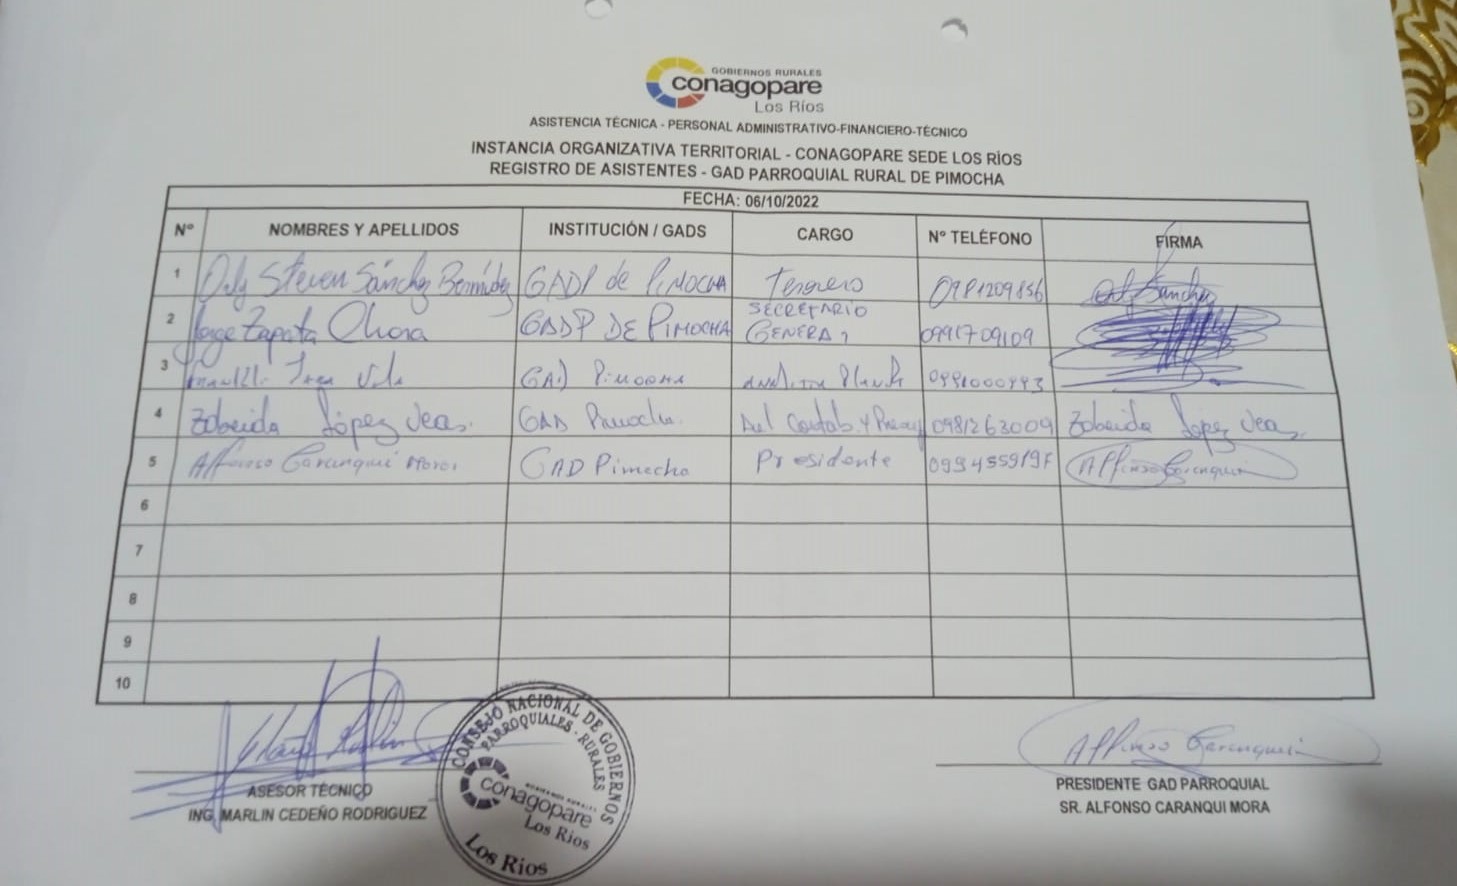 GOBIERNOS RURALES
conagopare
Los Ríos
ASISTENCIA TÉCNICA - PERSONAL ADMINISTRATIVO-FINANCIERO-TÉCNICO
INSTANCIA ORGANIZATIVA TERRITORIAL - CONAGOPARE SEDE LOS RÍOS
REGISTRO DE ASISTENTES - GAD PARROQUIAL RURAL DE PIMOCHA
FECHA: 06/10/2022
Nº NOMBRES Y APELLIDOS INSTITUCIÓN / GADS CARGO Nº TELÉFONO FIRMA
1 Steven Sánchez Bermúdez GADP de PIMOCHA Tesorero 0981209856 Sánchez
2 Jorge Zapata SECRETARIO
GADP DE PIMOCHA GENERAL 0991709109
3 GAD PIMOCHA
4 Zobeida López Vera. GAD Pimocha. 0981263009 Zobeida López Vera.
5 Alfonso Caranqui Mora GAD Pimocha Presidente Alfonso Caranqui
6
7
8
9
10
Alfonso Caranqui
ASESOR TÉCNICO
ING. MARLIN CEDEÑO RODRIGUEZ
PRESIDENTE GAD PARROQUIAL
SR. ALFONSO CARANQUI MORA
CONSEJO NACIONAL DE GOBIERNOS
PARROQUIALES - RURALES
GOBIERNOS RURALES
conagopare
Los Ríos
Los Ríos